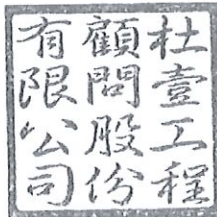 杜壹工程
顧問股份
有限公司